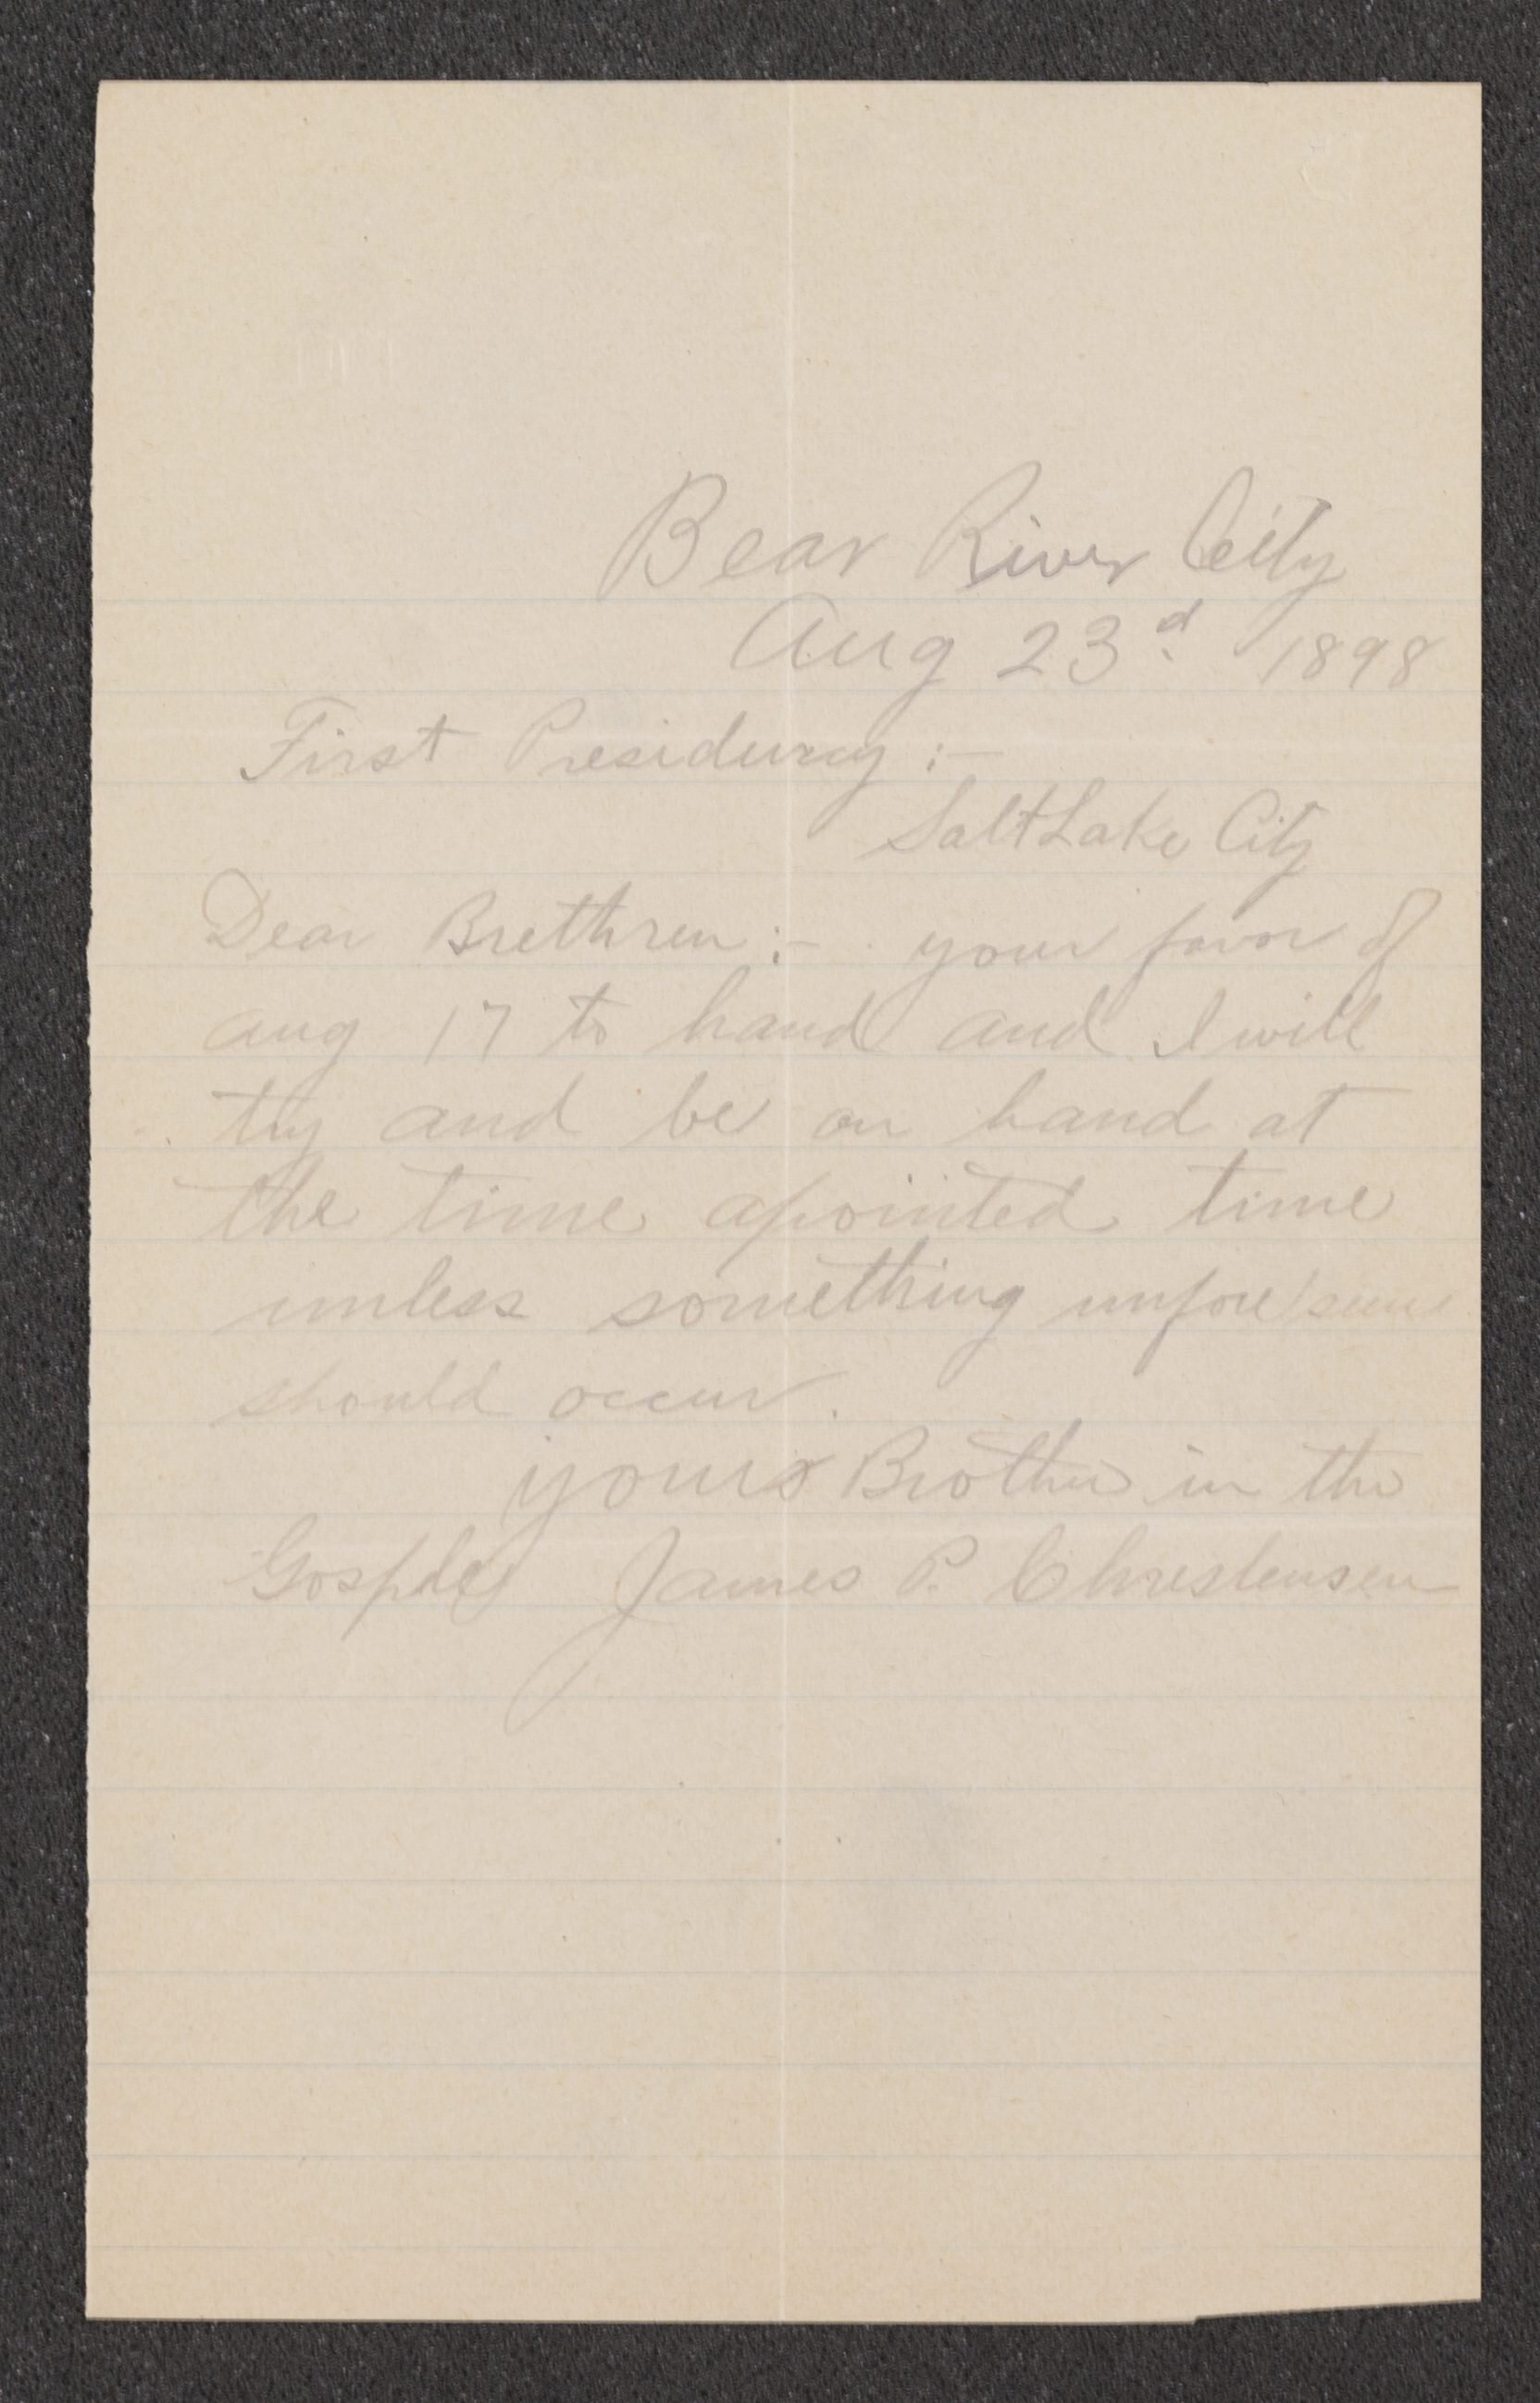 Bear River City
Aug 23d 1898
First Presidency :-
Salt Lake City
Dear Brethren :- your favor of
aug 17 to hand and I will
try and be on hand at
the time apointed time
unless something unforeseen
should occur.
yours Brother in the
Gosple James P. Christensen